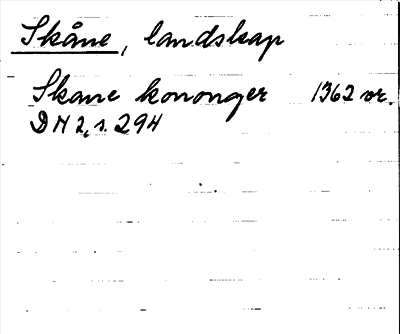 Skåne, landskap
Skane kononger 1362 or.
DN 2, s. 294